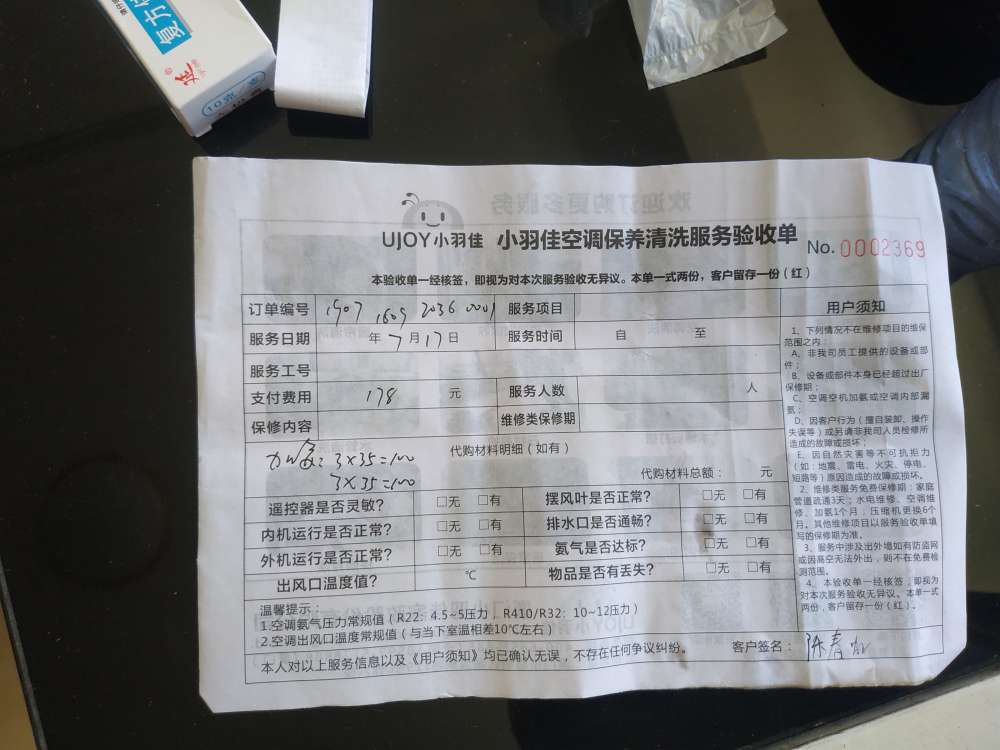 复方
10克/支
UJOY小羽佳 小羽佳空调保养清洗服务验收单 No. 0002369
本验收单一经核签，即视为对本次服务验收无异议。本单一式两份，客户留存一份（红）
订单编号 1907 1609 2036 0001 服务项目
服务日期 年 7 月 17 日 服务时间 自 至
服务工号
支付费用 178 元 服务人数 人
保修内容 维修类保修期
代购材料明细（如有）
3×35=100
3×35=100
代购材料总额： 元
遥控器是否灵敏? □无 □有 摆风叶是否正常? □无 □有
内机运行是否正常? □无 □有 排水口是否通畅? □无 □有
外机运行是否正常? □无 □有 氨气是否达标? □无 □有
出风口温度值? ℃ 物品是否有丢失? □无 □有
温馨提示：
1.空调氨气压力常规值（R22：4.5~5压力，R410/R32：10~12压力）
2.空调出风口温度常规值（与当下室温相差10℃左右）
本人对以上服务信息以及《用户须知》均已确认无误，不存在任何争议纠纷。 客户签名：
用户须知
1、下列情况不在维修项目的维保
范围之内：
A、非我司员工提供的设备或部
件；
B、设备或部件本身已经超过出厂
保修期；
C、空调空机加氨或空调内部漏
氨；
D、因客户行为（擅自装卸、操作
失误等）或另请非我司人员检修所
造成的故障或损坏；
E、因自然灾害等不可抗拒力
（如：地震、雷电、火灾、停电、
短路等）原因造成的故障或损坏。
2、维修类服务免费保修期：家庭
管道疏通3天；水电维修、空调维
修、加氨1个月；压缩机更换6个
月。其他维修项目以服务验收单填
写的保修期为准。
3、服务中涉及出外墙如有防盗网
或因高空无法外出，则不在免费检
测范围。
4、本验收单一经核签，即视为
对本次服务验收无异议。本单一式
两份，客户留存一份（红）。
欢迎订购更多服务